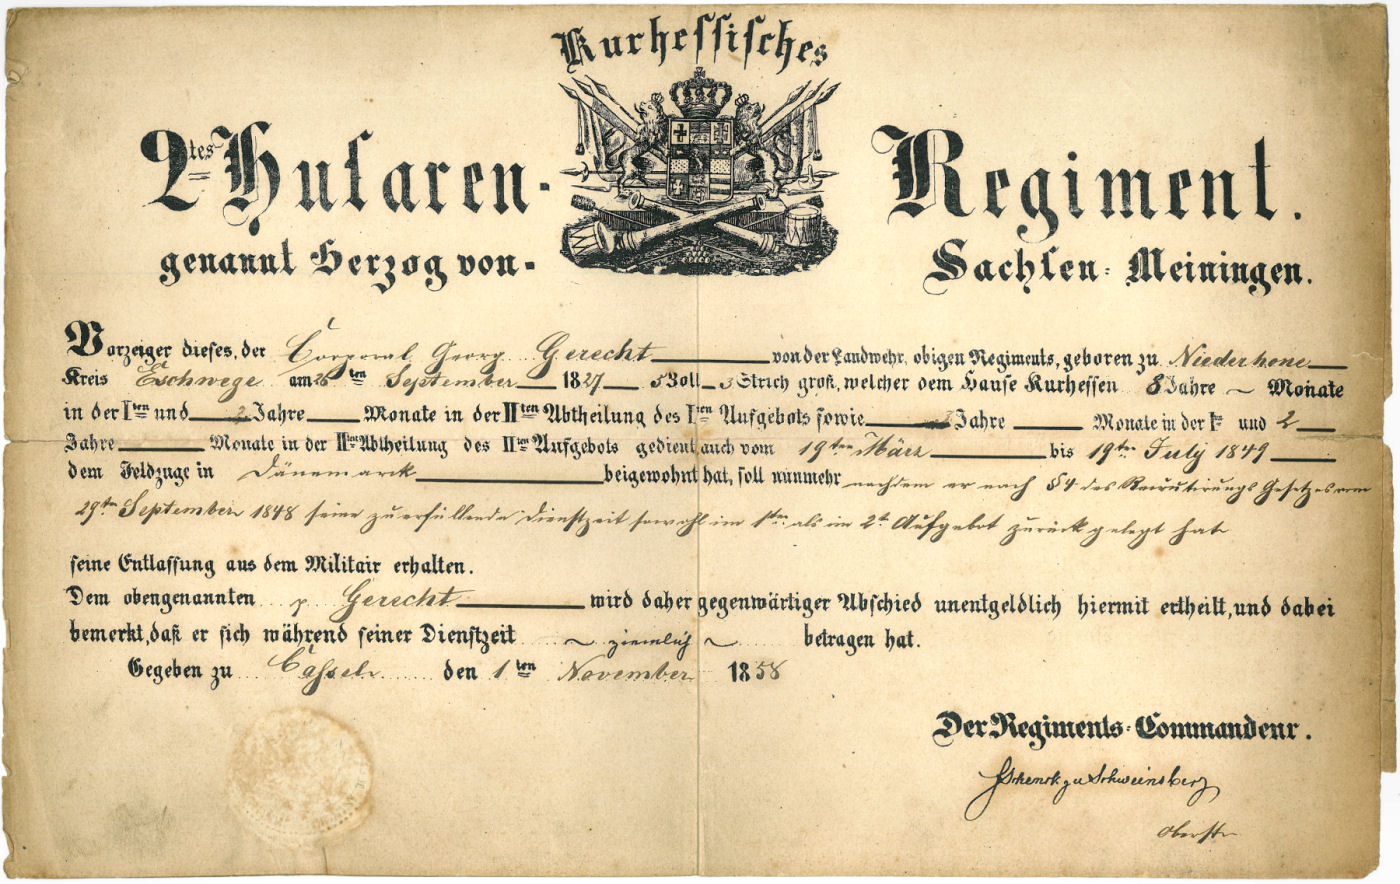 Kurhessisches
2tes Husaren- Regiment.
genannt Herzog von- Sachsen- Meiningen.
Vorzeiger dieses, der Corporal Georg Gerecht von der Landwehr, obigen Regiments, geboren zu Niederhone
Kreis Eschwege am 26ten September 1827 5 Zoll 3 Strich groß, welcher dem Hause Kurhessen 8 Jahre ~ Monate
in der Iten und 2 Jahre Monate in der IIten Abtheilung des Iten Aufgebots sowie 3 Jahre Monate in der Iten und 2
Jahre Monate in der IIten Abtheilung des IIten Aufgebots gedient auch vom 19ten März bis 19ten July 1849
dem Feldzuge in Dänemarck beigewohnt hat, soll nunmehr nachdem er nach §4 des Recrutirungs Gesetzes vom
29ten September 1848 seine zu erfüllende Dienstzeit sowohl im 1ten als im 2t. Aufgebot zurück gelegt hat
seine Entlassung aus dem Militair erhalten.
Dem obengenannten p Gerecht wird daher gegenwärtiger Abschied unentgeldlich hiermit ertheilt, und dabei
bemerkt, daß er sich während seiner Dienstzeit ~ ziemlich ~ betragen hat.
Gegeben zu Cassel den 1ten November 1858
Der Regiments-Commandeur.
Schenck zu Schweinsberg
Oberst